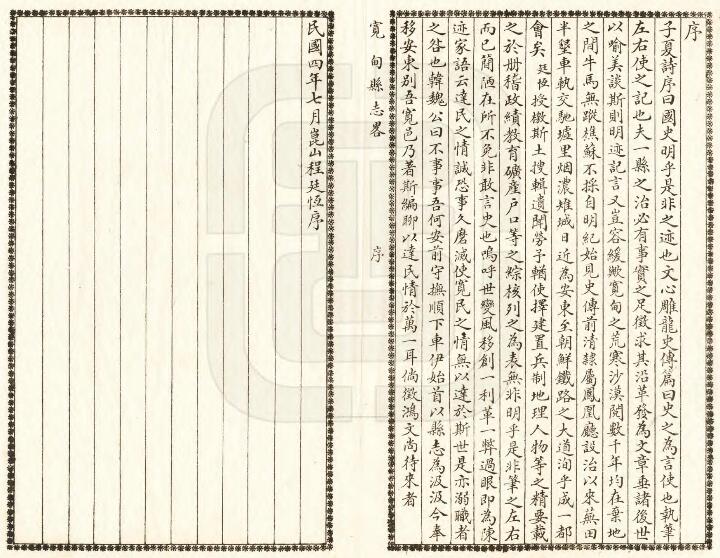 序
子夏詩序曰國史明乎是非之迹也文心雕龍史傳篇曰史之為言使也執筆
左右使之記也夫一縣之治必有事實之足徵求其沿革發為文章垂諸後世
以喻美談斯則明迹記言又豈容緩歟寬甸之荒寒沙漠閱數千年均在棄地
之間牛馬無蹤樵蘇不採自明紀始見史傳前清隸屬鳳凰廳設治以來蕪田
半墾車軌交馳墟里烟濃雉堞日近為安東至朝鮮鐵路之大道洵乎成一都
會矣廷恆授檄斯土搜輯遺聞勞予輶使擇建置兵制地理人物等之精要載
之於册稽政績敎育礦產戶口等之綜核列之為表無非明乎是非筆之左右
而已簡陋在所不免非敢言史也嗚呼世變風移創一利革一弊過眼即為陳
迹家語云達民之情誠恐事久磨滅使寬民之情無以達於斯世是亦溺職者
之咎也韓魏公曰不事事吾何安前守撫順下車伊始首以縣志為汲汲今奉
移安東别吾寬邑乃著斯編聊以達民情於萬一耳倘徵鴻文尚待來者
寬甸縣志畧
序
民國四年七月崑山程廷恆序